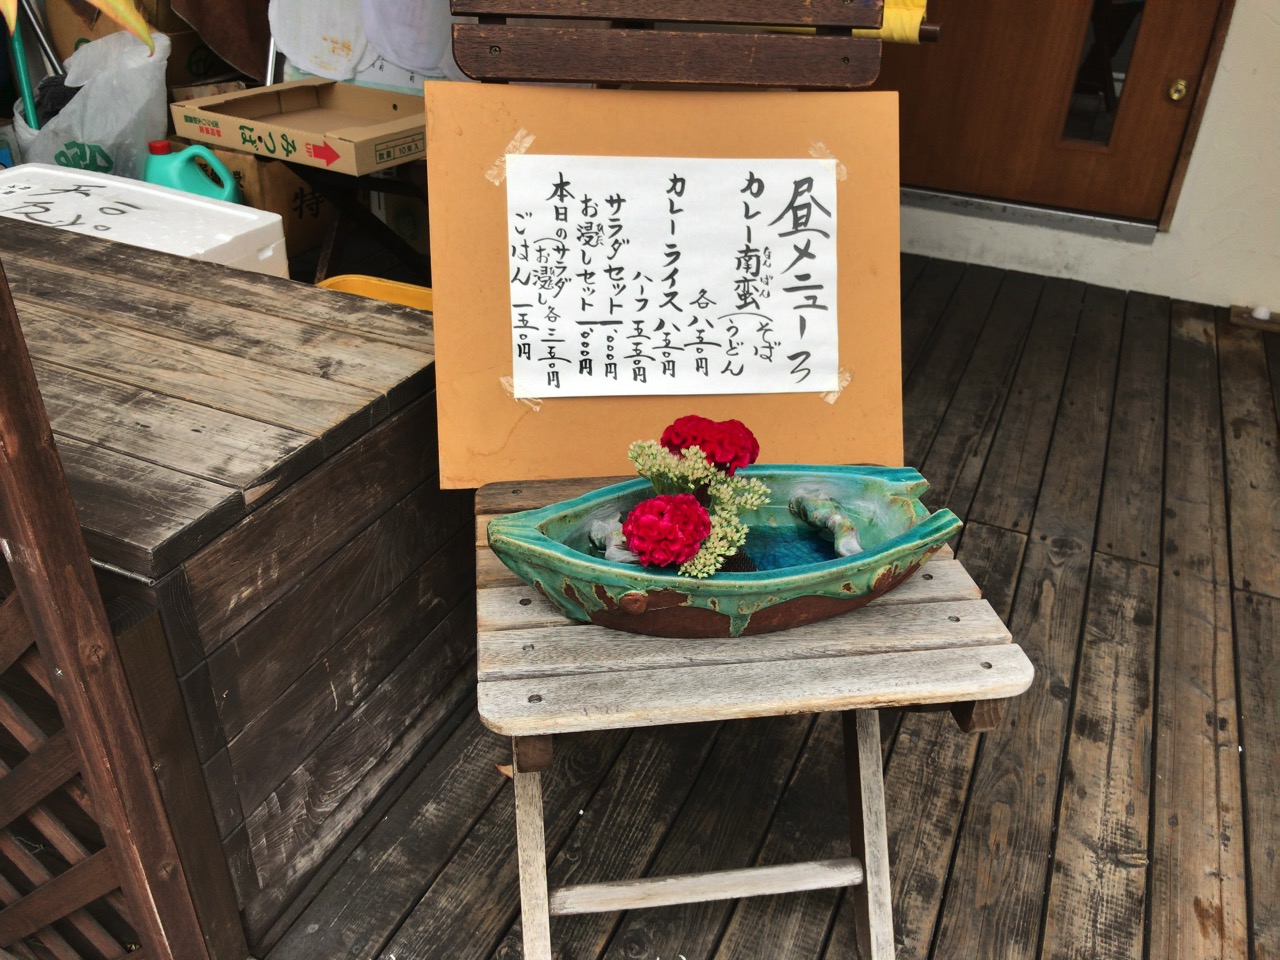 昼メニュー
カレー南蛮(そば
なんばん
うどん
各八五〇円
カレーライス 八五〇円
ハーフ 五五〇円
サラダセット 一、〇〇〇円
お浸しセット 一、〇〇〇円
ひた
本日の(サラダ
お浸し 各三五〇円
ごはん 一五〇円
みつば
UP
10束入
特